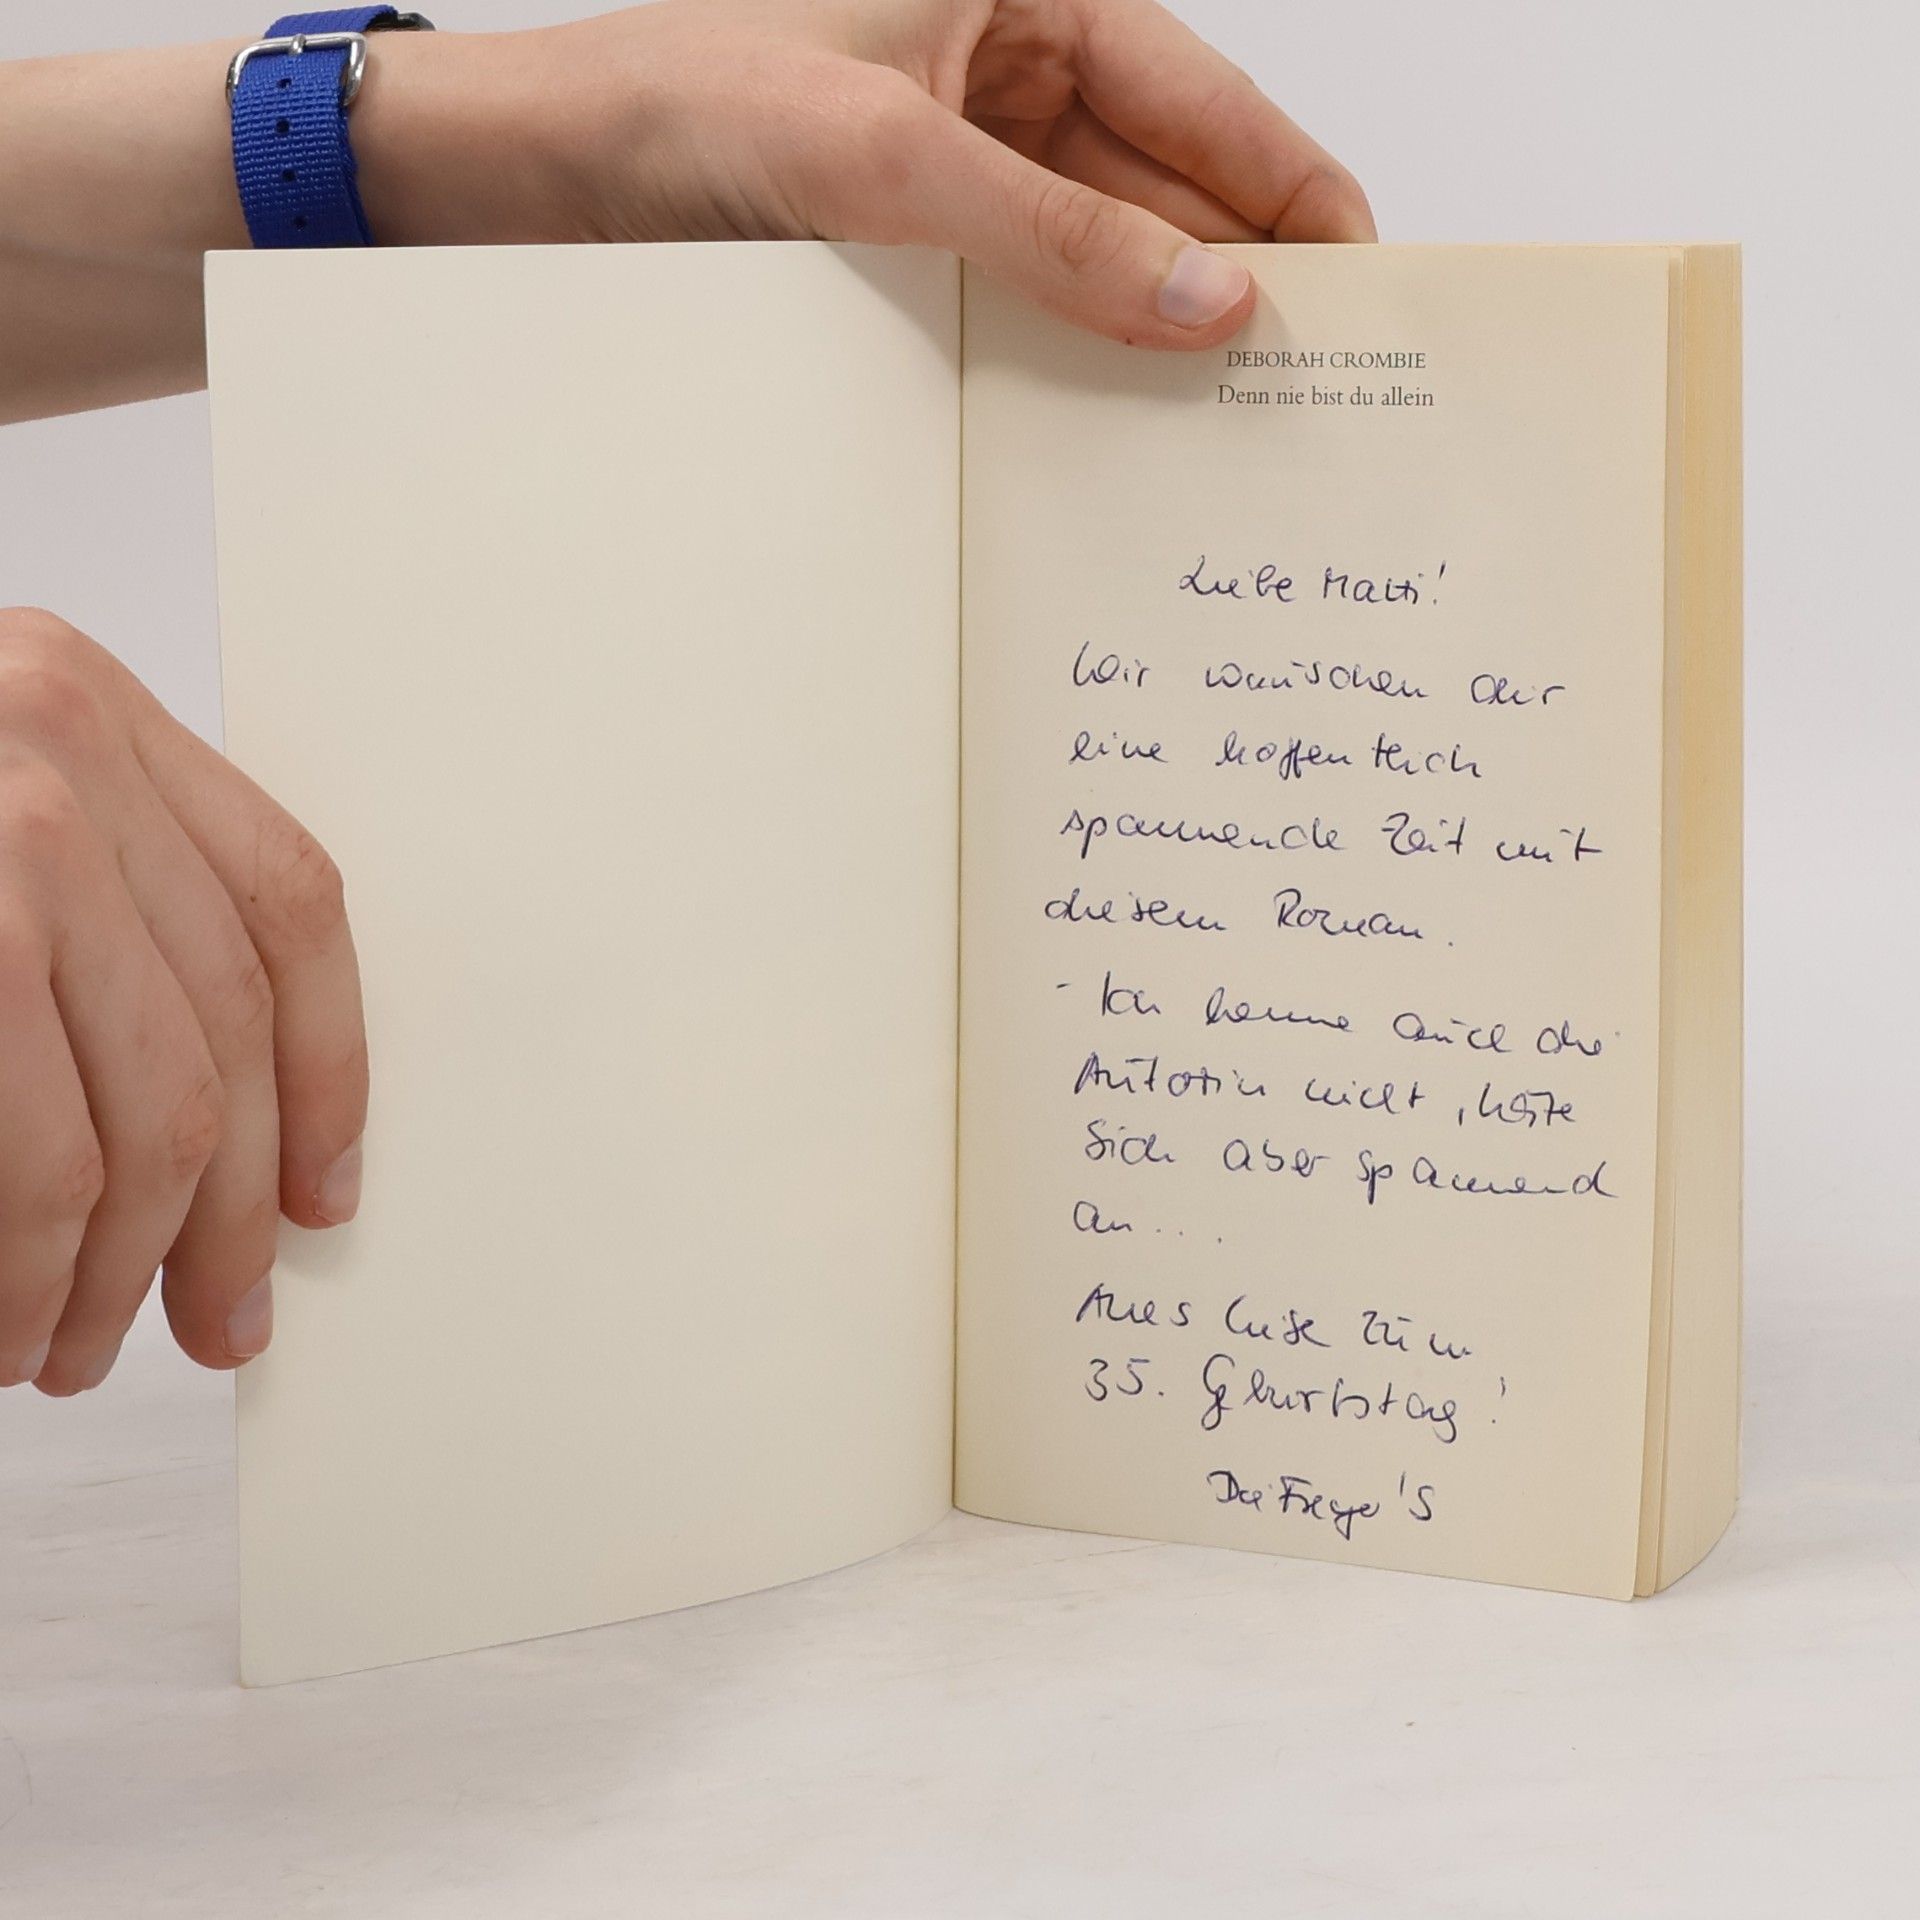 DEBORAH CROMBIE
Denn nie bist du allein
Liebe Matti!
Wir wünschen dir
eine hoffentlich
spannende Zeit mit
diesem Roman.
- Ich kenne auch die
Autorin nicht, hörte
sich aber spannend
an...
Alles Liebe zum
35. Geburtstag!
Die